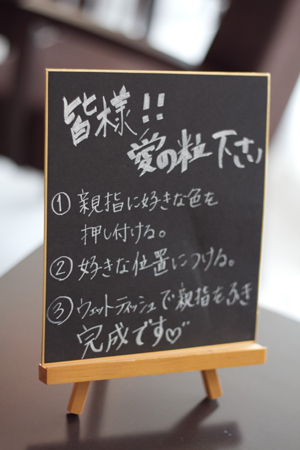 皆様!!
愛の粒下さい
① 親指に好きな色を
押し付ける。
② 好きな位置につける。
③ ウェットティッシュで親指をふき
完成です♡